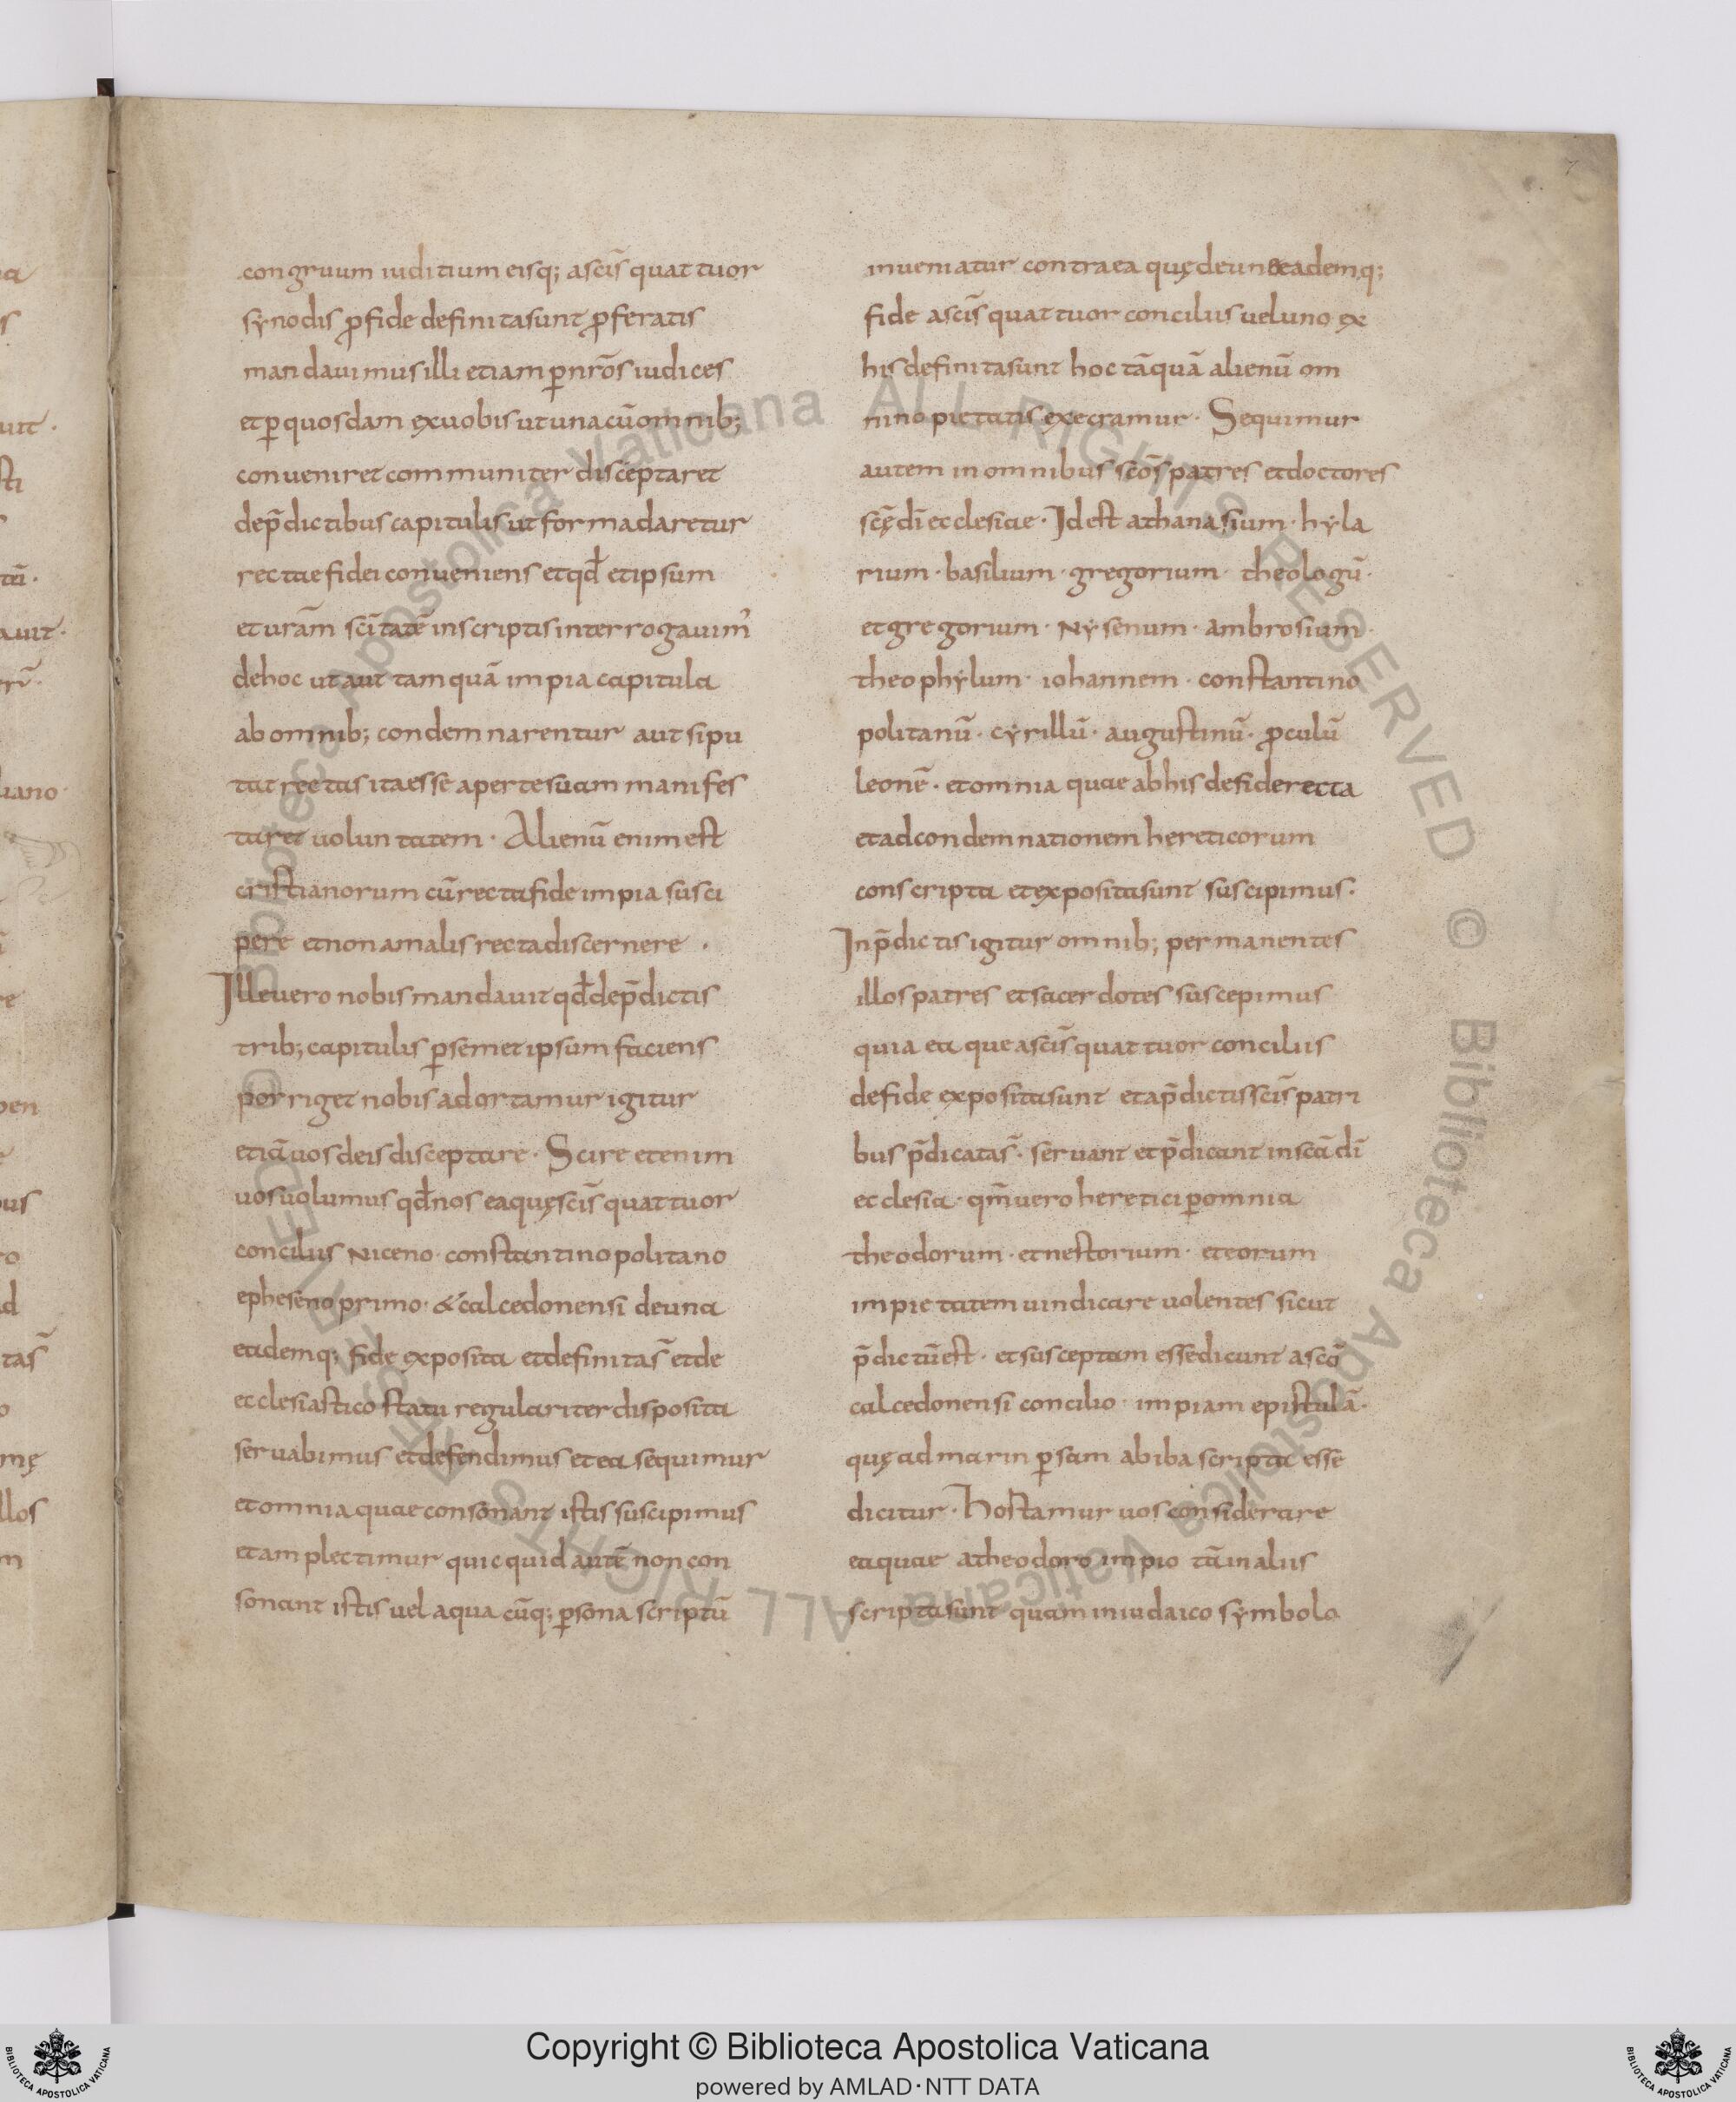 congruum iuditium eisq; a scīs quattuor
synodis ꝓ fide definita sunt ꝓferatis
mandauimus illi etiam ꝑ nr̄os iudices
et ꝑ quosdam ex uobis ut una cū omnib;
conueniret communiter disceptaret
de p̄dictibus capitulis ut forma daretur
rectae fidei conueniens et qd̄ et ipsum
et uram̄ scītatē in scriptis interrogauim᾽
de hoc ut aut tamquā impia capitula
ab omnib; condemnarentur aut si pu
tat rectas ita esse aperte suam manifes
taret uoluntatem · Alienū enim est
cristianorum cū recta fide impia susci
pere et non a malis recta discernere ·
Ille uero nobis mandauit qd̄ de p̄dictis
trib; capitulis ꝑ semet ipsum faciens
porriget nobis adortamur igitur
etiā uos de is disceptare · Scire etenim
uos uolumus qd̄ nos ea quę scīs quattuor
concilus Niceno · constantinopolitano
epheseno primo · & calcedonensi de una
eademq; fide exposita et definita s̄ et de
ecclesiastico statu regulariter disposita
seruabimus et defendimus et ea sequimur
et omnia quae consonant istis suscipimus
et amplectimur quicquid autē non con
sonant istis uel a quacūq; ꝑsona scriptū
inueniatur contra ea quę de un& eademq;
fide a scīs quattuor concilus uel uno ex
his definita sunt hoc tāquā alienū om
nino pietatis execramur · Sequimur
autem in omnibus scōs patres et doctores
scę̄ dī ecclesiae · Id est athanasium · hyla
rium · basilium · gregorium · theologū ·
et gregorium · Nysenum · ambrosium ·
theophylum · iohannem · constantino
politanū · cyrillū · augustinū · ꝓculū
leonē · et omnia quae ab his de fide recta
et ad condemnationem hereticorum
conscripta et exposita sunt suscipimus ·
In p̄dictis igitur omnib; permanentes
illos patres et sacerdotes suscepimus
quia ea que a scīs quattuor concilus
de fide exposita sunt et a p̄dictis scīs patri
bus p̄dicata s̄ · seruant et p̄dicant in scā dī
ecclesia · qm̄ uero heretici ꝑ omnia
theodorum · et nestorium · et eorum
impietatem uindicare uolentes sicut
p̄dictū est · et susceptam esse dicunt a scō
calcedonensi concilio · impiam epistulā ·
quę ad marin ꝑsam ab iba scripta esse
dicitur · Hostamur uos considerare
ea quae a theodoro impio tā in alus
scripta sunt quam in iudaico symbolo
Copyright © Biblioteca Apostolica Vaticana
powered by AMLAD·NTT DATA